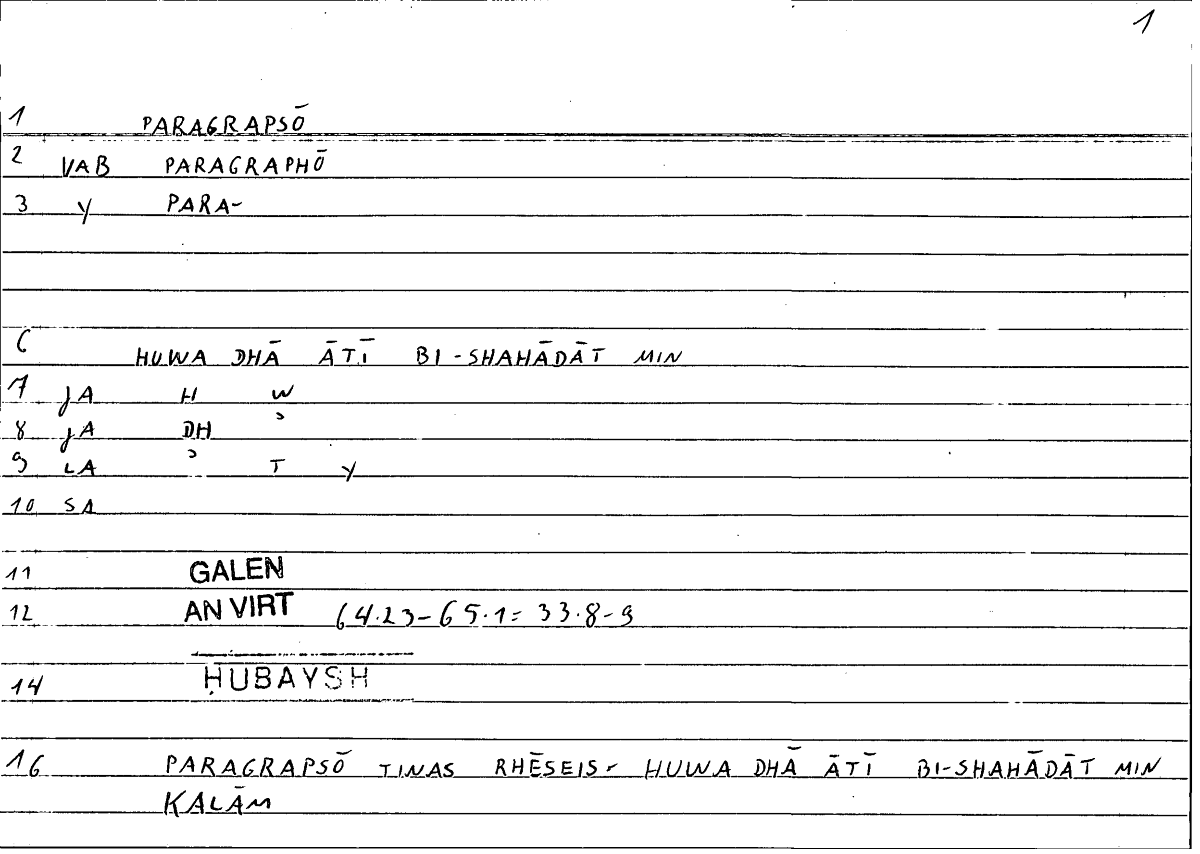 1
1 PARAGRAPSŌ
2 VAB PARAGRAPHŌ
3 Y PARA-
6 HUWA DHĀ ĀTĪ BI-SHAHĀDĀT MIN
7 JA H W
8 JA DH ʾ
9 LA ʾ T Y
10 SA
11 GALEN
12 AN VIRT 64.23-65.1= 33.8-9
14 ḤUBAYSH
16 PARAGRAPSŌ TINAS RHĒSEIS- HUWA DHĀ ĀTĪ BI-SHAHĀDĀT MIN
KALĀM